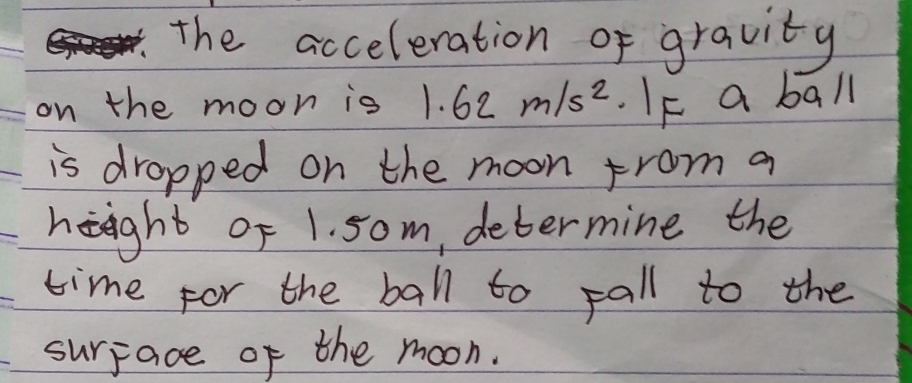 The acceleration of gravity
on the moon is 1.62 m/s². If a ball
is dropped on the moon from a
height of 1.50m, determine the
time for the ball to fall to the
surface of the moon.